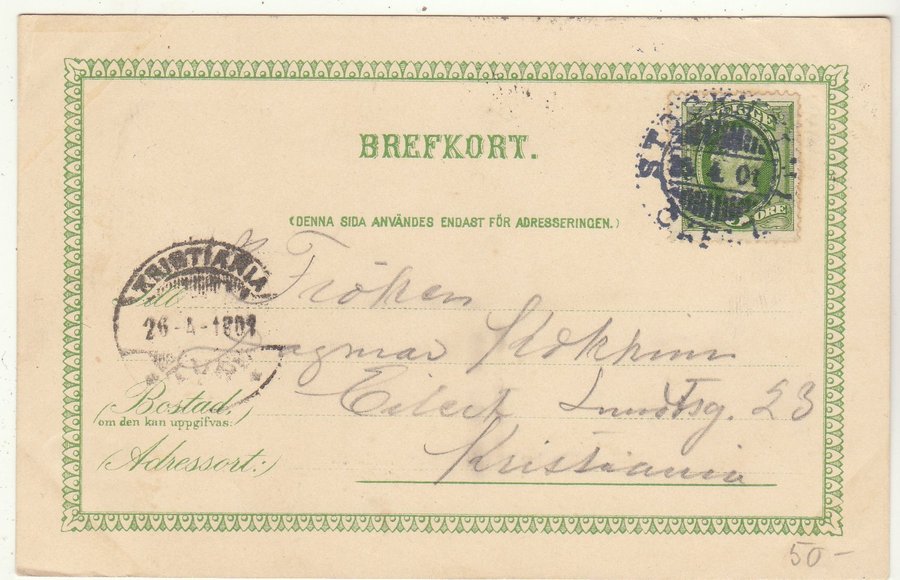 BREFKORT.
(DENNA SIDA ANVÄNDES ENDAST FÖR ADRESSERINGEN.)
STOCKHOLM
4 01
5 ÖRE
KRISTIANIA
26-4-1901
Fröken
Dagmar
Eilert Sundtsg. 23
Kristiania
(Bostad,
om den kan uppgifvas:
(Adressort:)
50-